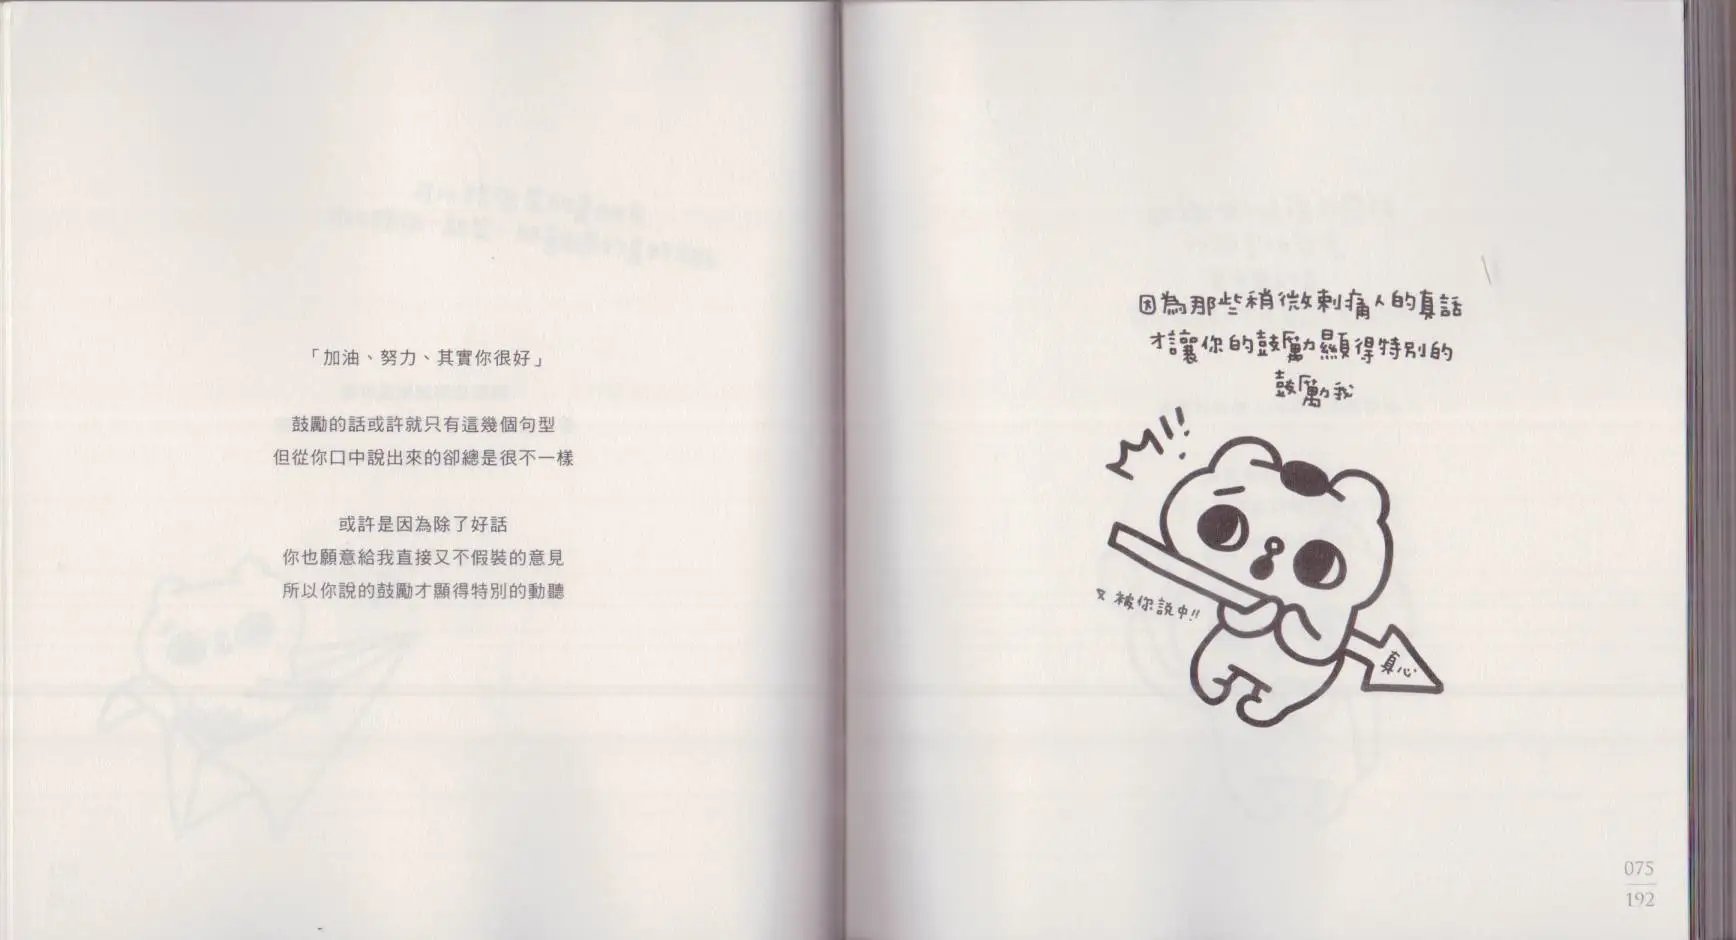 「加油、努力、其實你很好」
鼓勵的話或許就只有這幾個句型
但從你口中說出來的卻總是很不一樣
或許是因為除了好話
你也願意給我直接又不假裝的意見
所以你說的鼓勵才顯得特別的動聽
因為那些稍微刺痛人的真話
才讓你的鼓勵顯得特別的
鼓勵我
又被你說中!!
真心
075
192